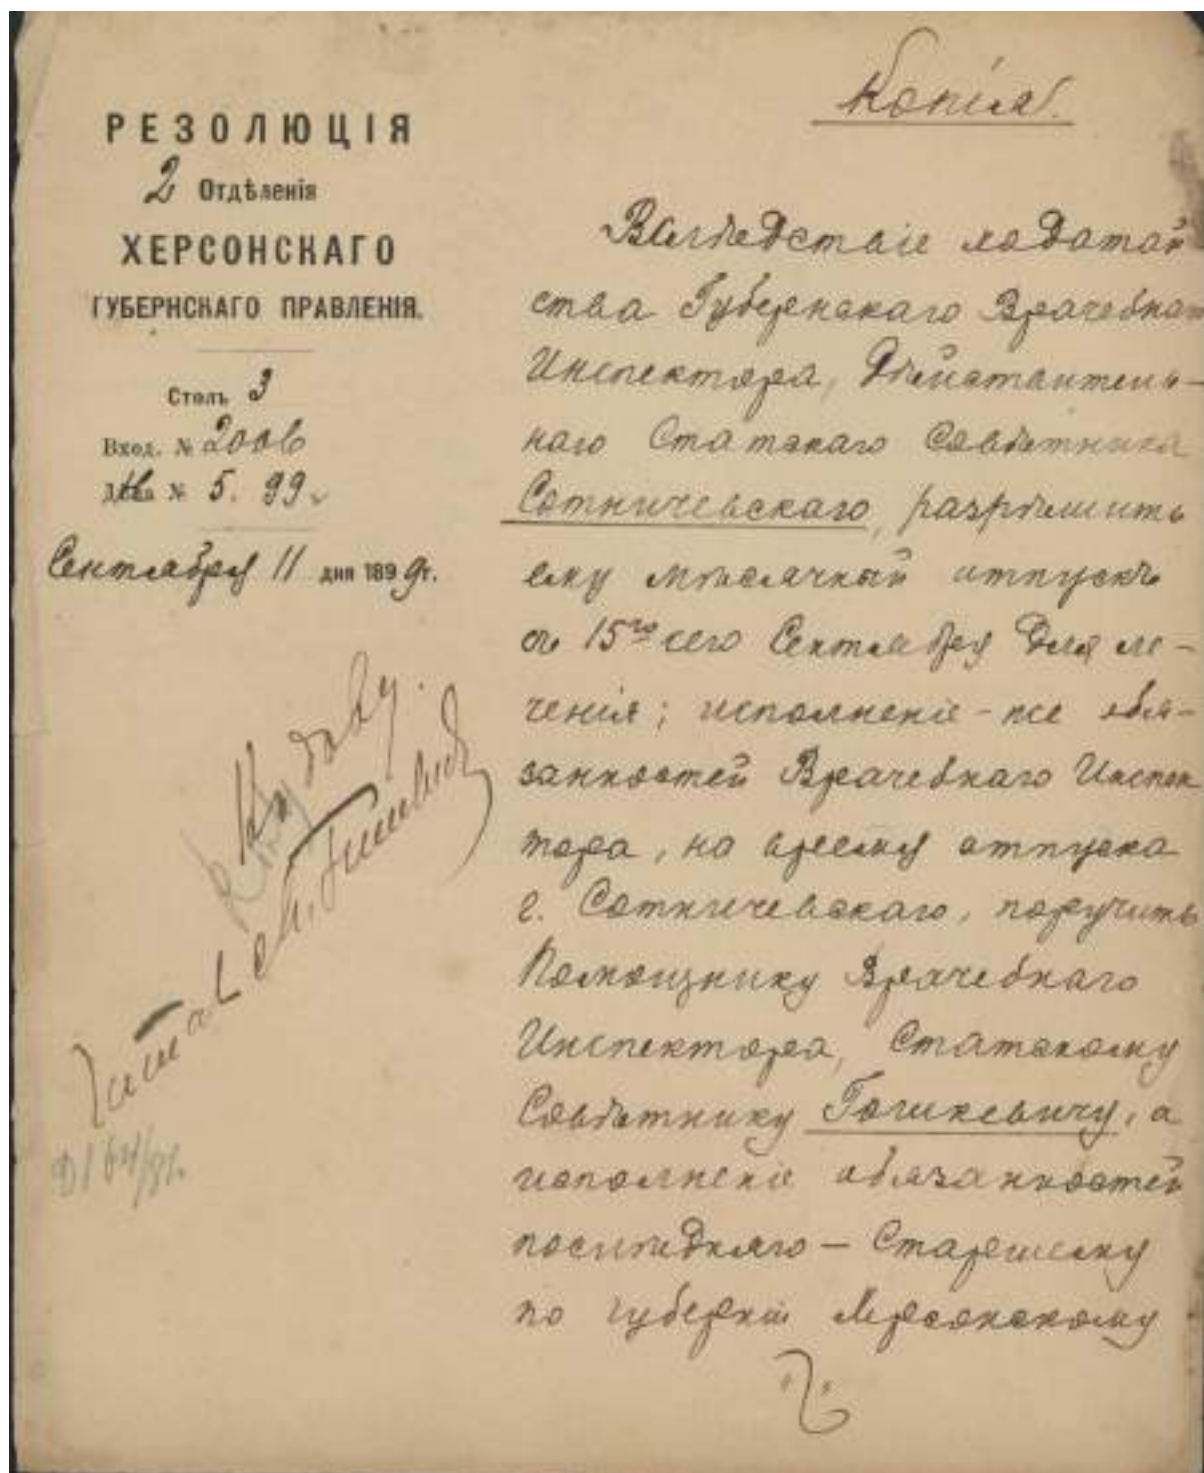 РЕЗОЛЮЦІЯ
2 Отдѣленія
ХЕРСОНСКАГО
ГУБЕРНСКАГО ПРАВЛЕНІЯ.
Столъ 3
Вход. № 2006
Дѣла № 5. 99
Сентября 11 дня 1899 г.
Копія.
Вслѣдствіе ходатай
ства Губернскаго Врачебнаго
Инспектора, Дѣйствитель-
наго Статскаго Совѣтника
Сотничевскаго, разрѣшить
ему мѣсячный отпускъ
съ 15го сего Сентября для ле-
ченія; исполненіе-же обя-
занностей Врачебнаго Инспек
тора, на время отпуска
г. Сотничевскаго, поручить
Помощнику Врачебнаго
Инспектора, Статскому
Совѣтнику Гошкевичу, а
исполненіе обязанностей
послѣдняго — Старшему
по губерніи Херсонскому
Читалъ